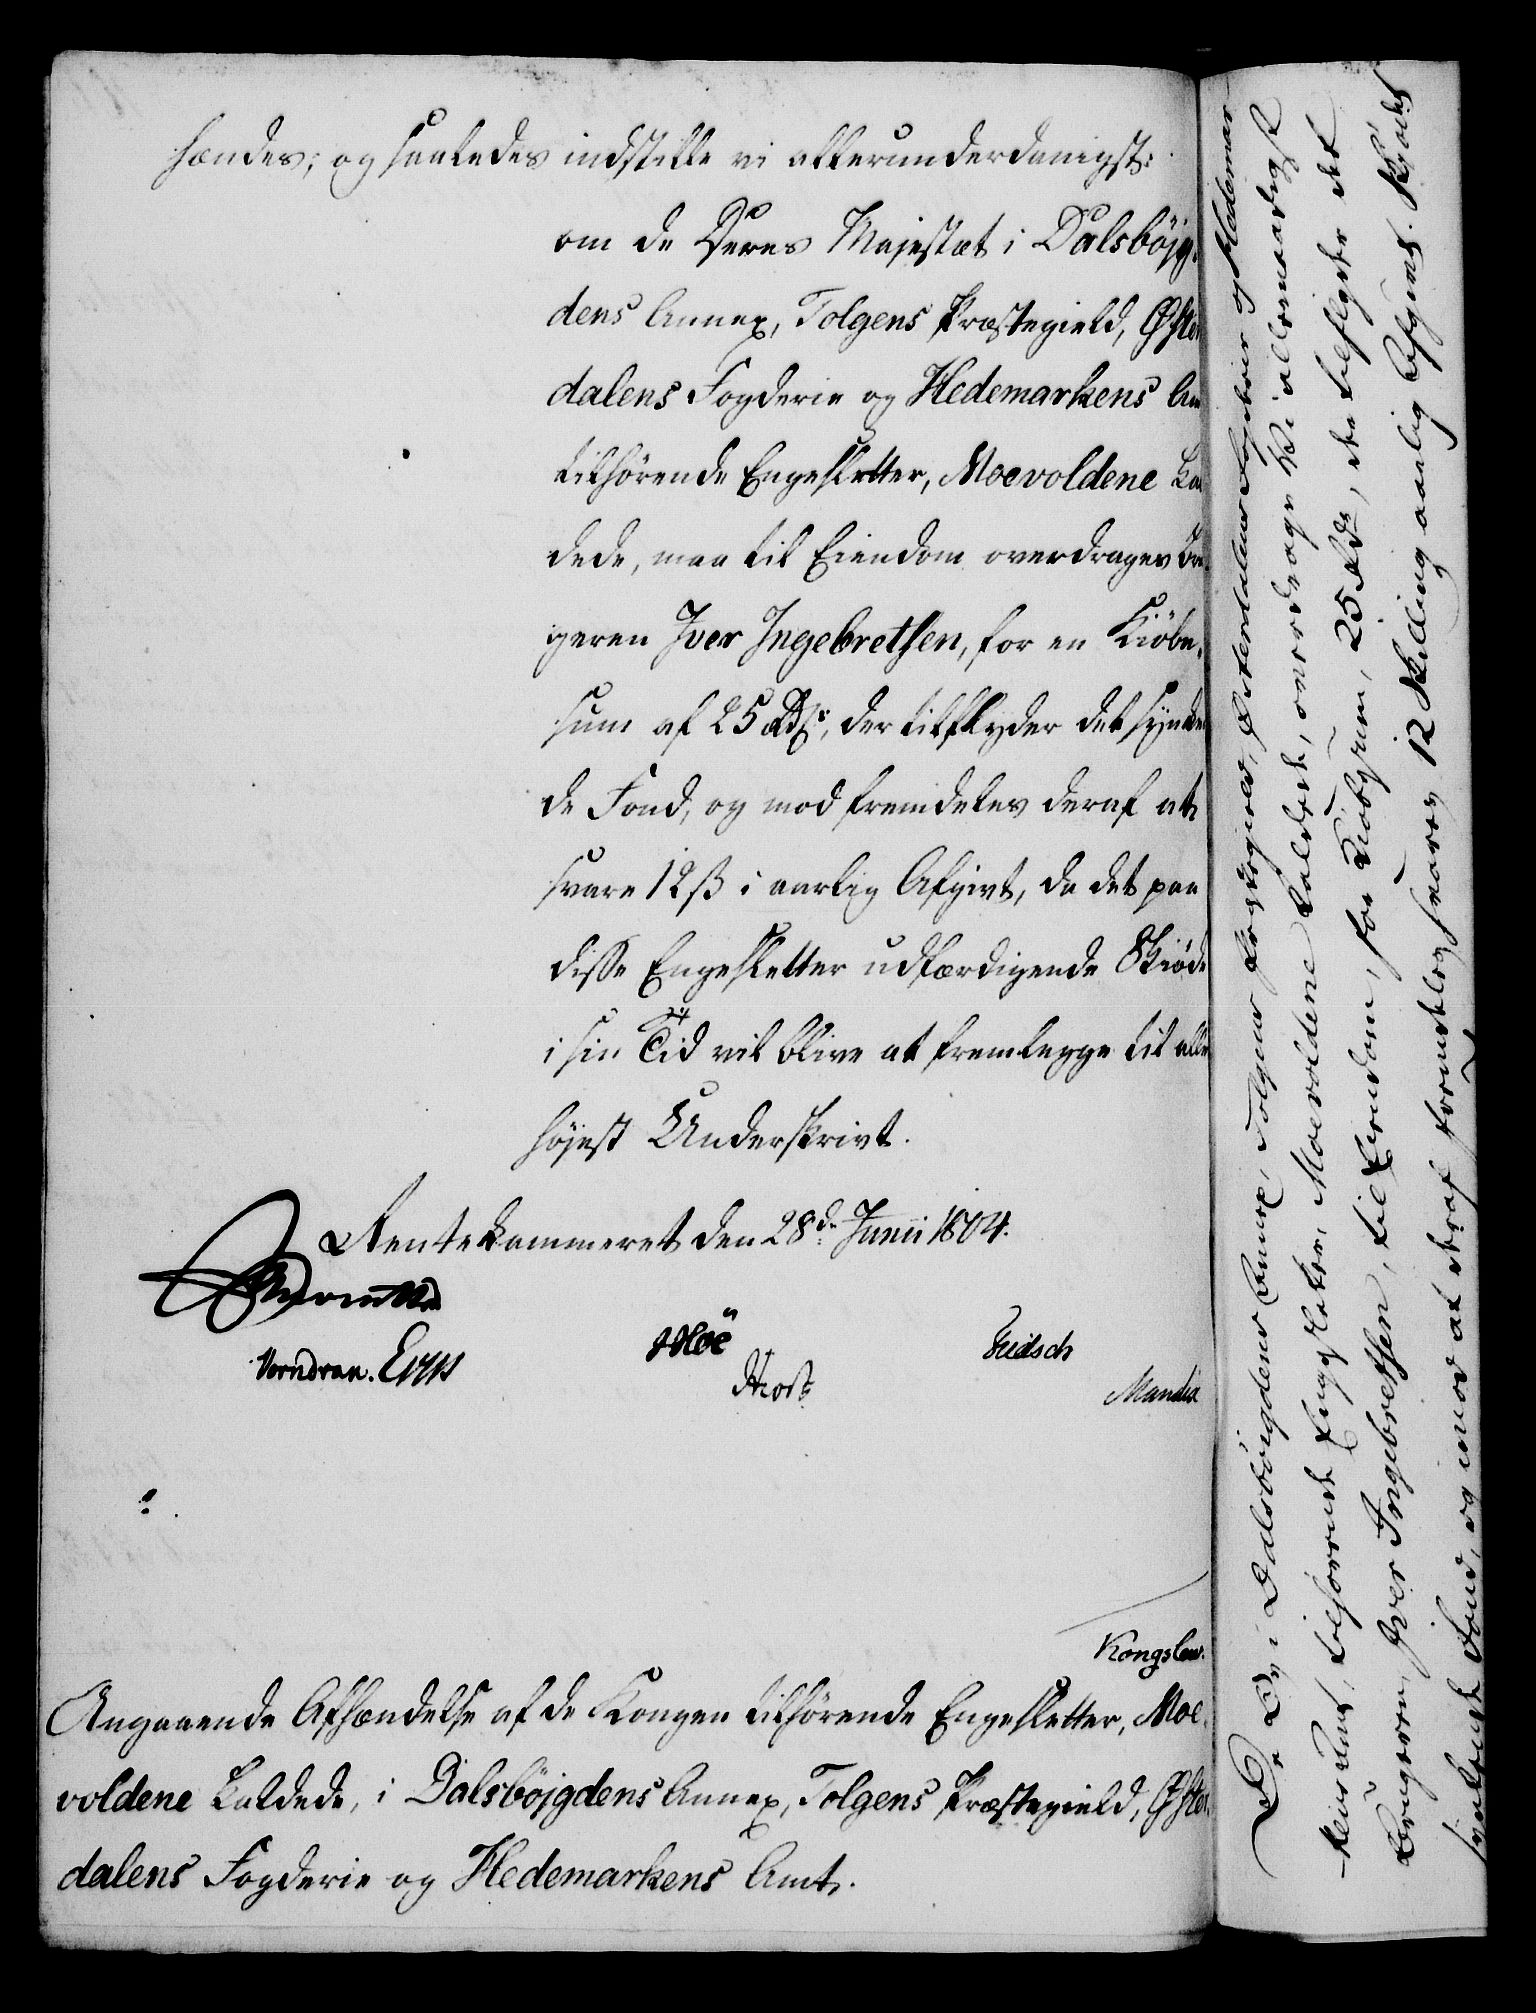 hændes; og saaledes indstille vi allerunderdanigst:
om de Deres Majestæt i Dalsböjg-
dens Annex, Tolgens Præstegield, Øster
dalens Fogderie og Hedemarkens Am
tilhörende Engesletter, Moevoldene kal
dede, maa til Eiendom overdrages Bru-
geren Iver Ingebretsen, for en Kiöbe-
sum af 25 Rdlr, der tilflyder det synken
de Fond, og mod fremdeles deraf at
svare 12 ß i aarlig Afgivt, da det paa
disse Engesletter udfærdigende Skiöde
i sin Tid vil blive at fremlegge til aller
höjest Underskrivt.
Rentekammeret den 28de Junii 1804.
Wormskiold
Vorndran. Eeg
Möe
Host
Fridsch
Manthe
Kongslew.
Angaaende Afhændelse af de Kongen tilhörende Engesletter, Moe-
voldene kaldede, i Dalsböjgdens Annex, Tolgens Præstegield, Øster
dalens Fogderie og Hedemarkens Amt.
De Os i Dalsböigdens Annex, Tolgens Præstegield, Østerdalens Fogderie og Hedemar-
kens Amt, tilhörende Engesletter, Moevoldene kaldede, overdrage Vi allernaadigst
Brugeren, Iver Ingebretsen, til Eiendom, for Kiöbesum, 25 Rdlr, der tilflyder det
synkende Fond, og mod at deraf fremdeles svares 12 Skilling aarlig Afgivt. Skjödet